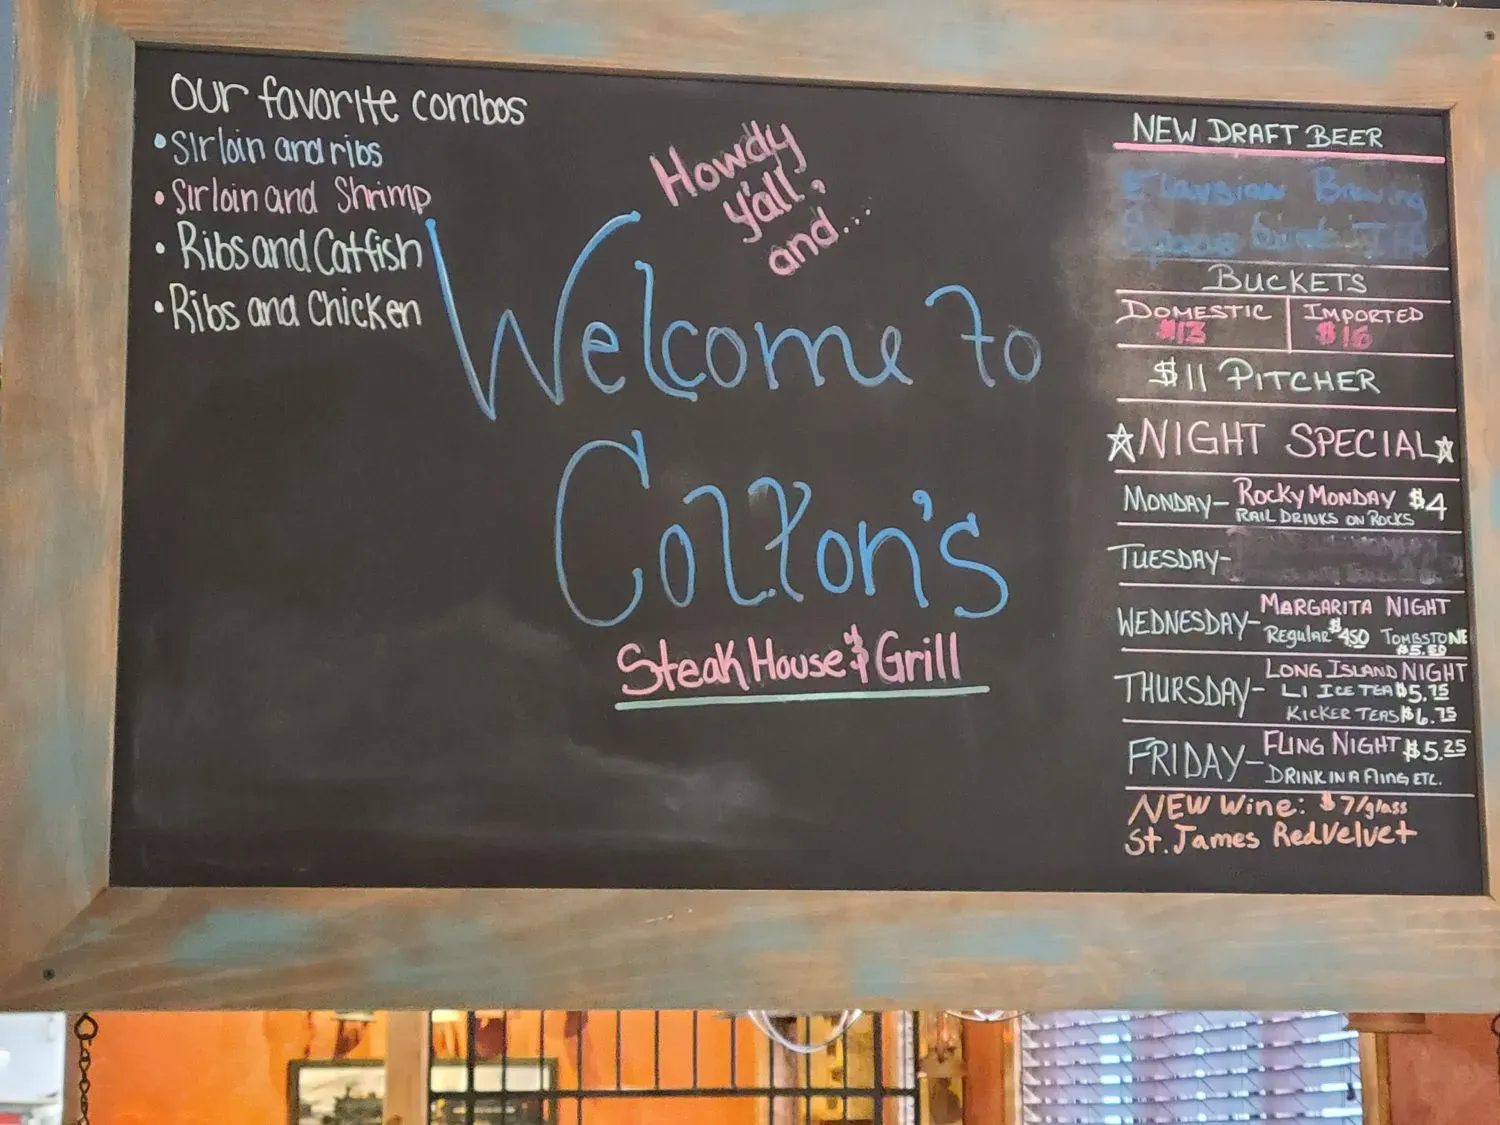 Our favorite combos
• Sirloin and ribs
• Sirloin and Shrimp
• Ribs and Catfish
• Ribs and Chicken
Howdy
y'all,
and...
Welcome to
Colton's
Steak House & Grill
NEW DRAFT BEER
Elaysian Brewing
BUCKETS
DOMESTIC
$13
IMPORTED
$16
$11 PITCHER
☆NIGHT SPECIAL☆
MONDAY- ROCKY MONDAY $4
RAIL DRINKS ON ROCKS
TUESDAY-
WEDNESDAY- MARGARITA NIGHT
Regular $4.50 TOMBSTONE
$5.50
THURSDAY- LONG ISLAND NIGHT
LI ICE TEA $5.75
KICKER TEAS $6.75
FRIDAY- FLING NIGHT $5.25
DRINK IN A FLING ETC.
NEW Wine: $7/glass
St. James Red Velvet